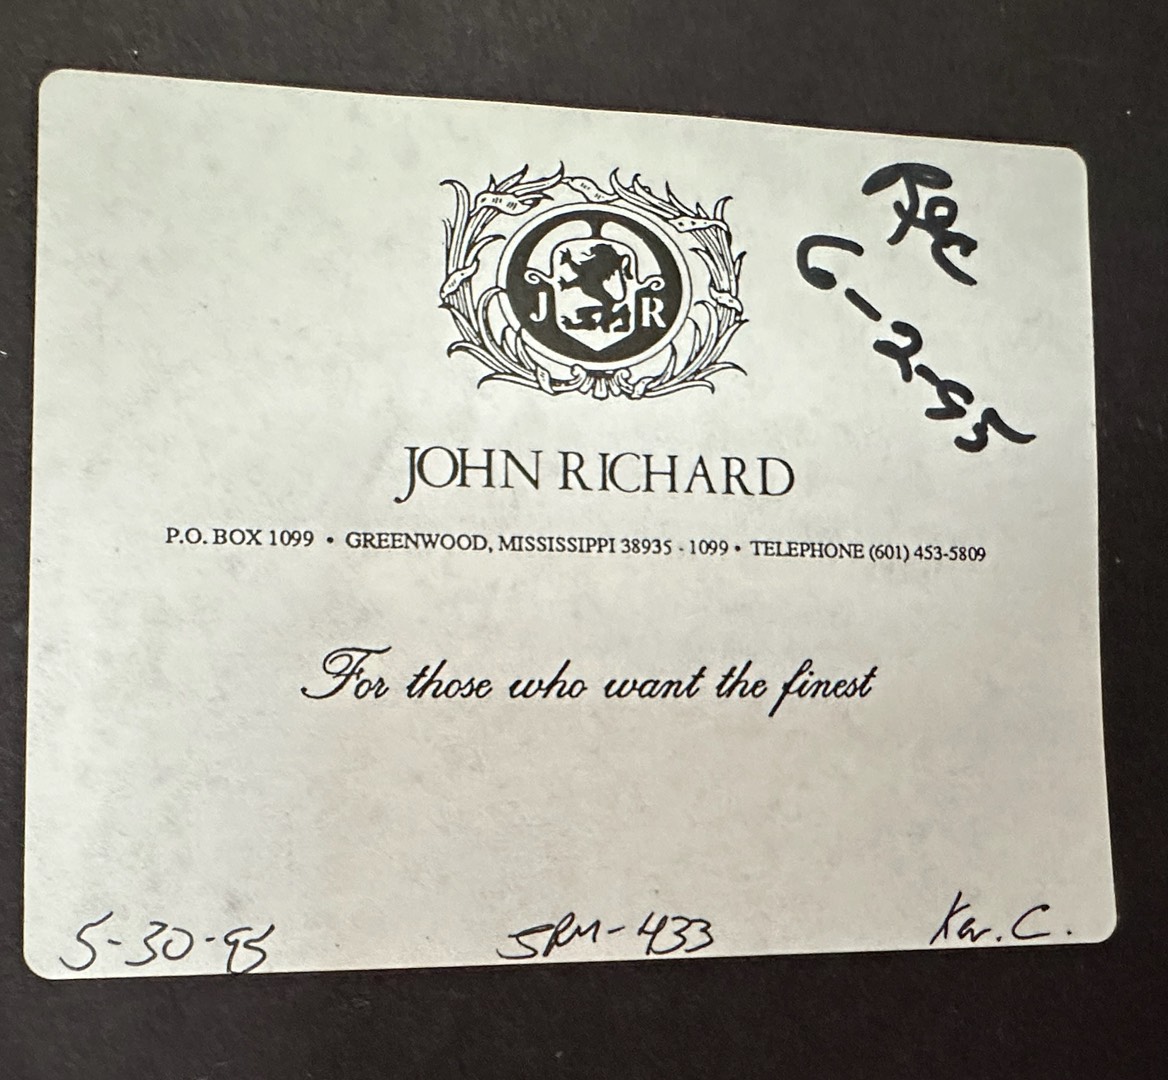 Rec
6-2-95
J R
JOHN RICHARD
P.O. BOX 1099 • GREENWOOD, MISSISSIPPI 38935 - 1099 • TELEPHONE (601) 453-5809
For those who want the finest
5-30-95 JRM-433 Kar. C.